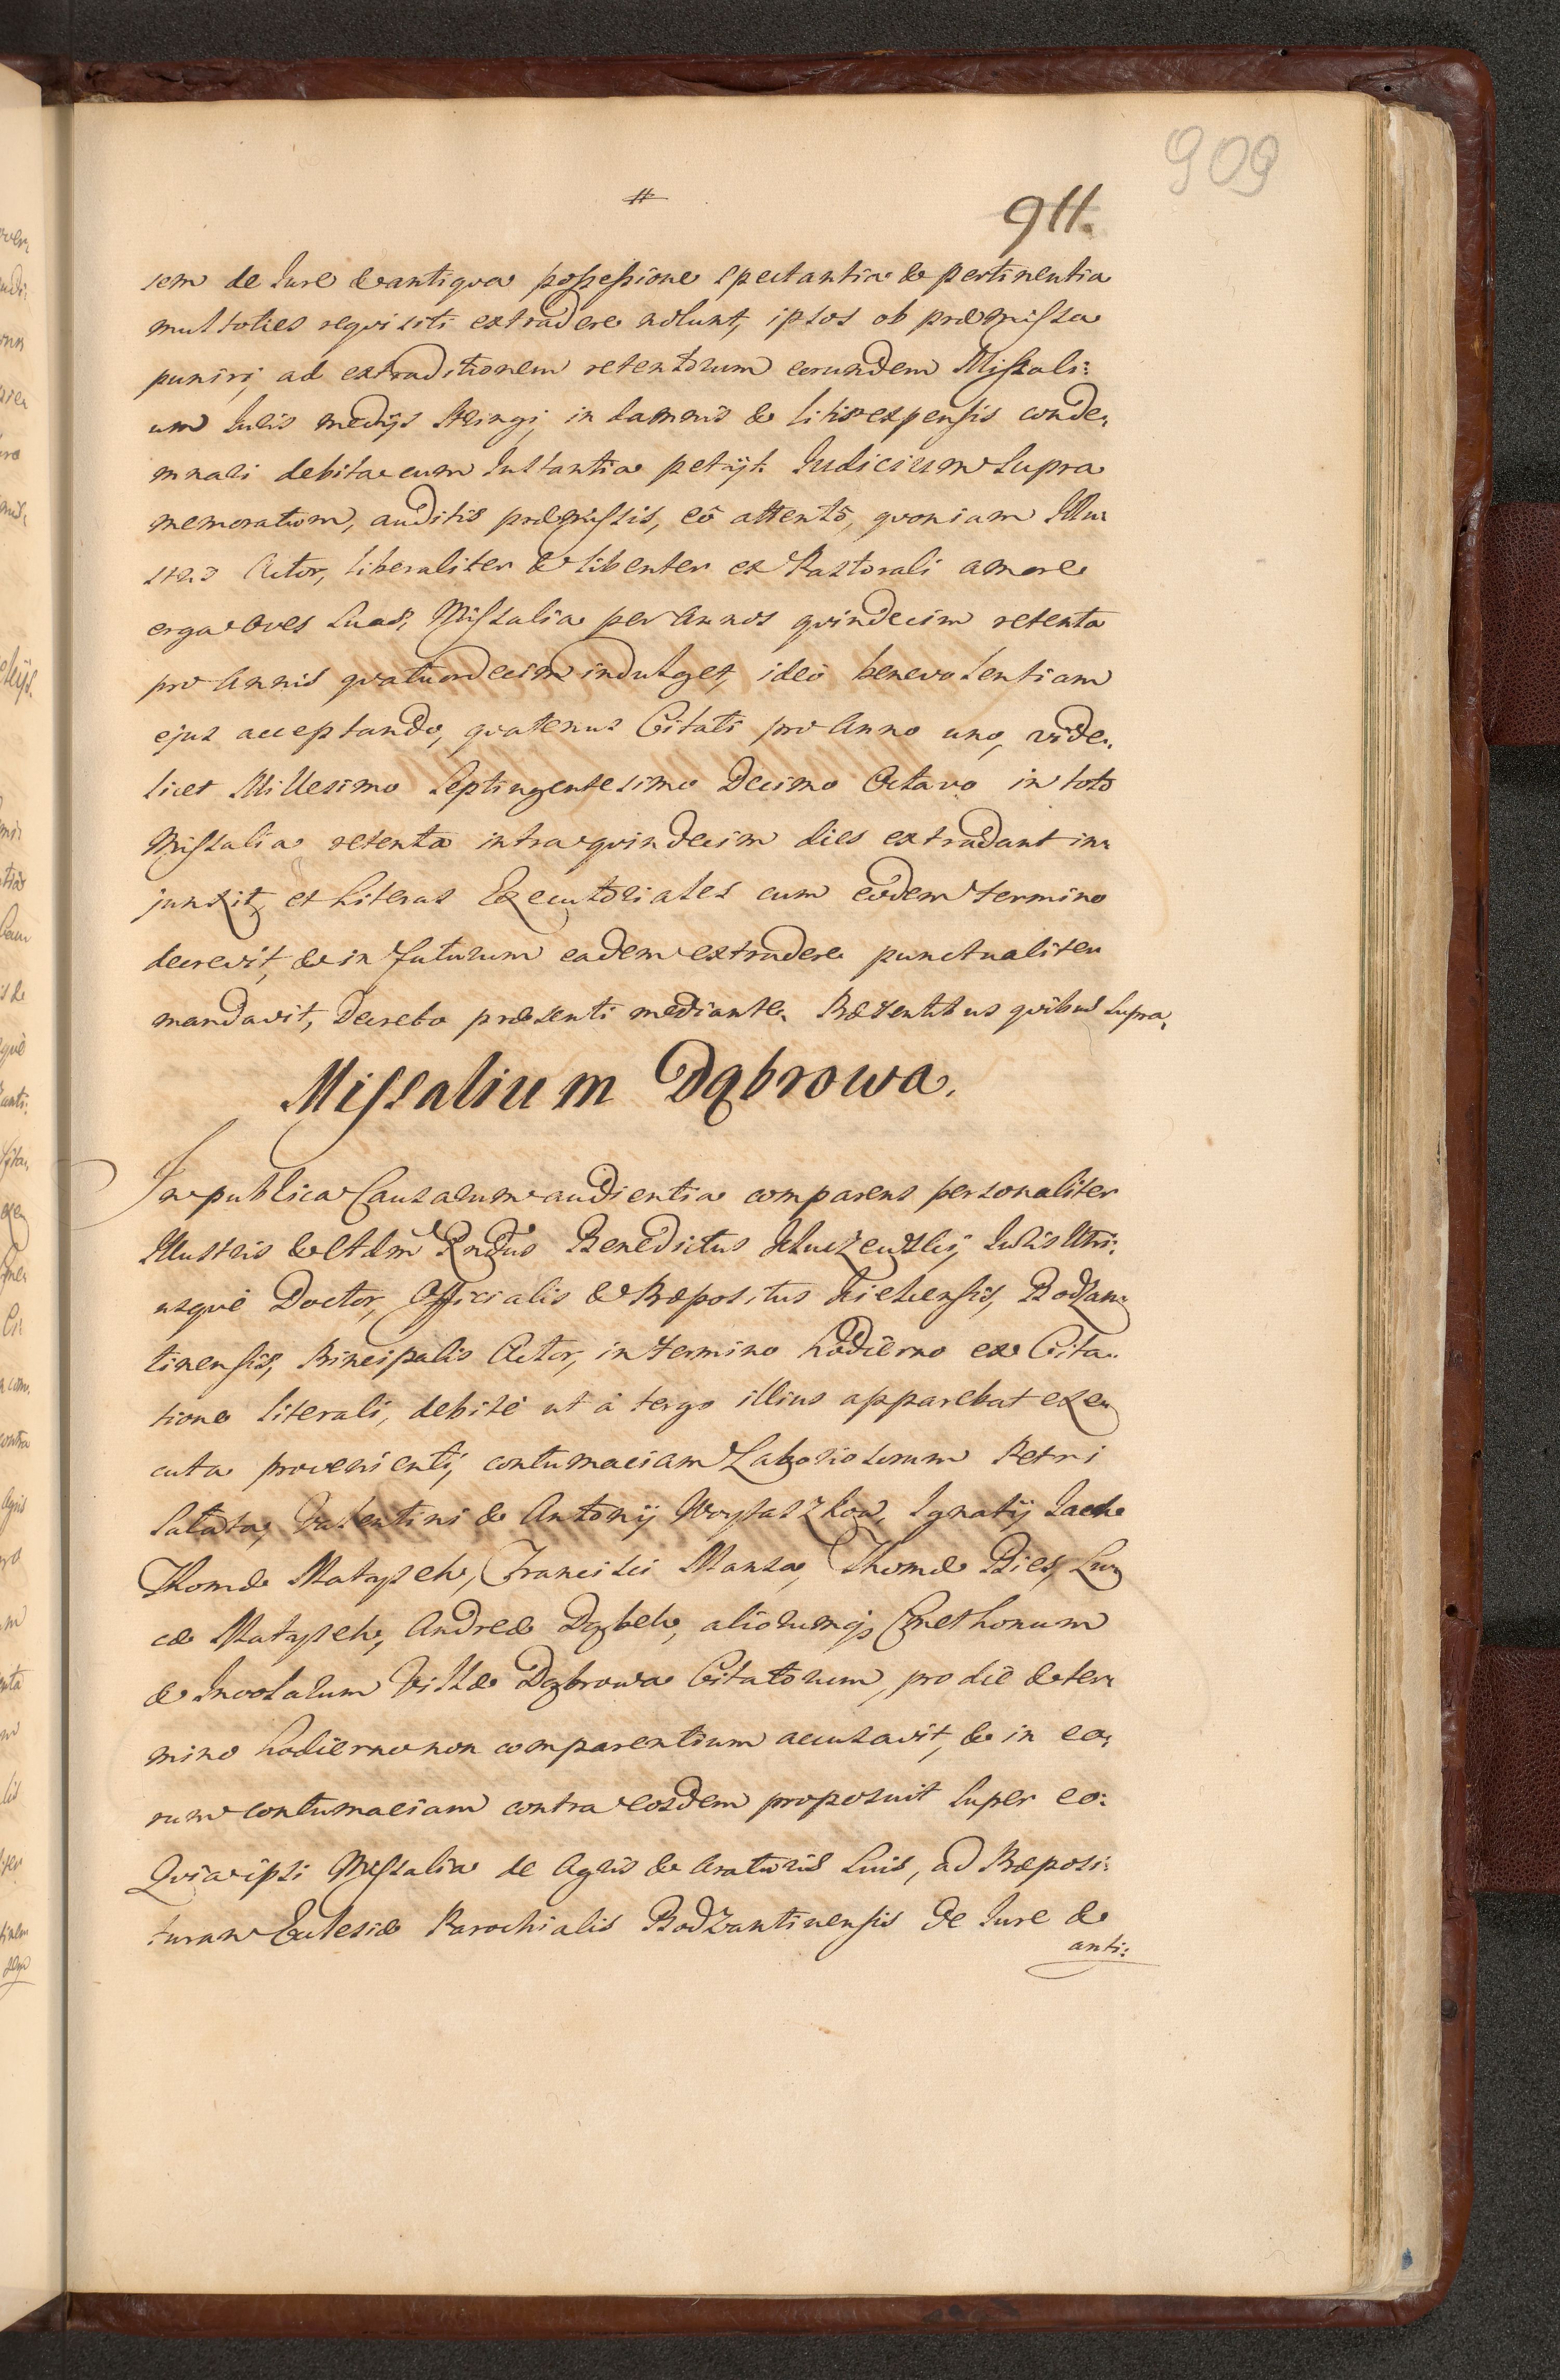 909
#
911.
sem de Jure & antiqua possessione spectantia & pertinentia
multoties requisiti extradere nolunt, ipsos ob præmissa
puniri, ad extraditionem retentorum eorundem Missali:
um Juris medijs stringi, in damnis & litis expensis conde,
mnari debita cum Instantia petijt. Judicium supra
memoratum, auditis præmissis, eô attentô, quoniam Illu:
stris Actor, liberaliter & libenter ex Pastorali amore
erga Oves suas, Missalia per Annos quindecim retenta
pro Annis quatuordecim indulget, ideò benevolentiam
ejus acceptando, quatenus Citati pro Anno uno, vide,
licet Millesimo Septingentesimo Decimo Octavo in toto
Missalia retenta intra quindecim dies extradant in:
junxit, et Literas Executoriales cum eôdem termino
decrevit, & in futurum eadem extradere punctualiter
mandavit, Decreto præsenti mediante. Præsentibus quibus supra,
Missalium Dąbrowa.
In publica Causarum audientia comparens personaliter
Illustris & Adm Rndus Benedictus Juris Utri:
usquè Doctor, Officialis & Præpositus Kielcensis, Bodzan:
tinensis, Principalis Actor, in termino hodierno ex Cita:
tione literali, debitè ut à tergo illius apparebat exe,
cuta provenienti, contumaciam Laboriosorum Petri
Salata, Valentini & Antonij Woytaszkow, Ignatij
Thomæ Matysek, Francisci Mansa, Thomæ Bies, Lu,
cæ Matysek, Andreæ Dąbek, aliorumq; Cmethonum
& Incolarum Villæ Dąbrowa Citatorum, pro die & ter:
mino hodierno non comparentium accusavit, & in eo,
rum contumaciam contra eosdem proposuit super eo:
Quia ipsi Missalia de Agris & Araturis suis, ad Præposi:
turam Ecclesiæ Parochialis Bodzantinensis de Jure &
anti: